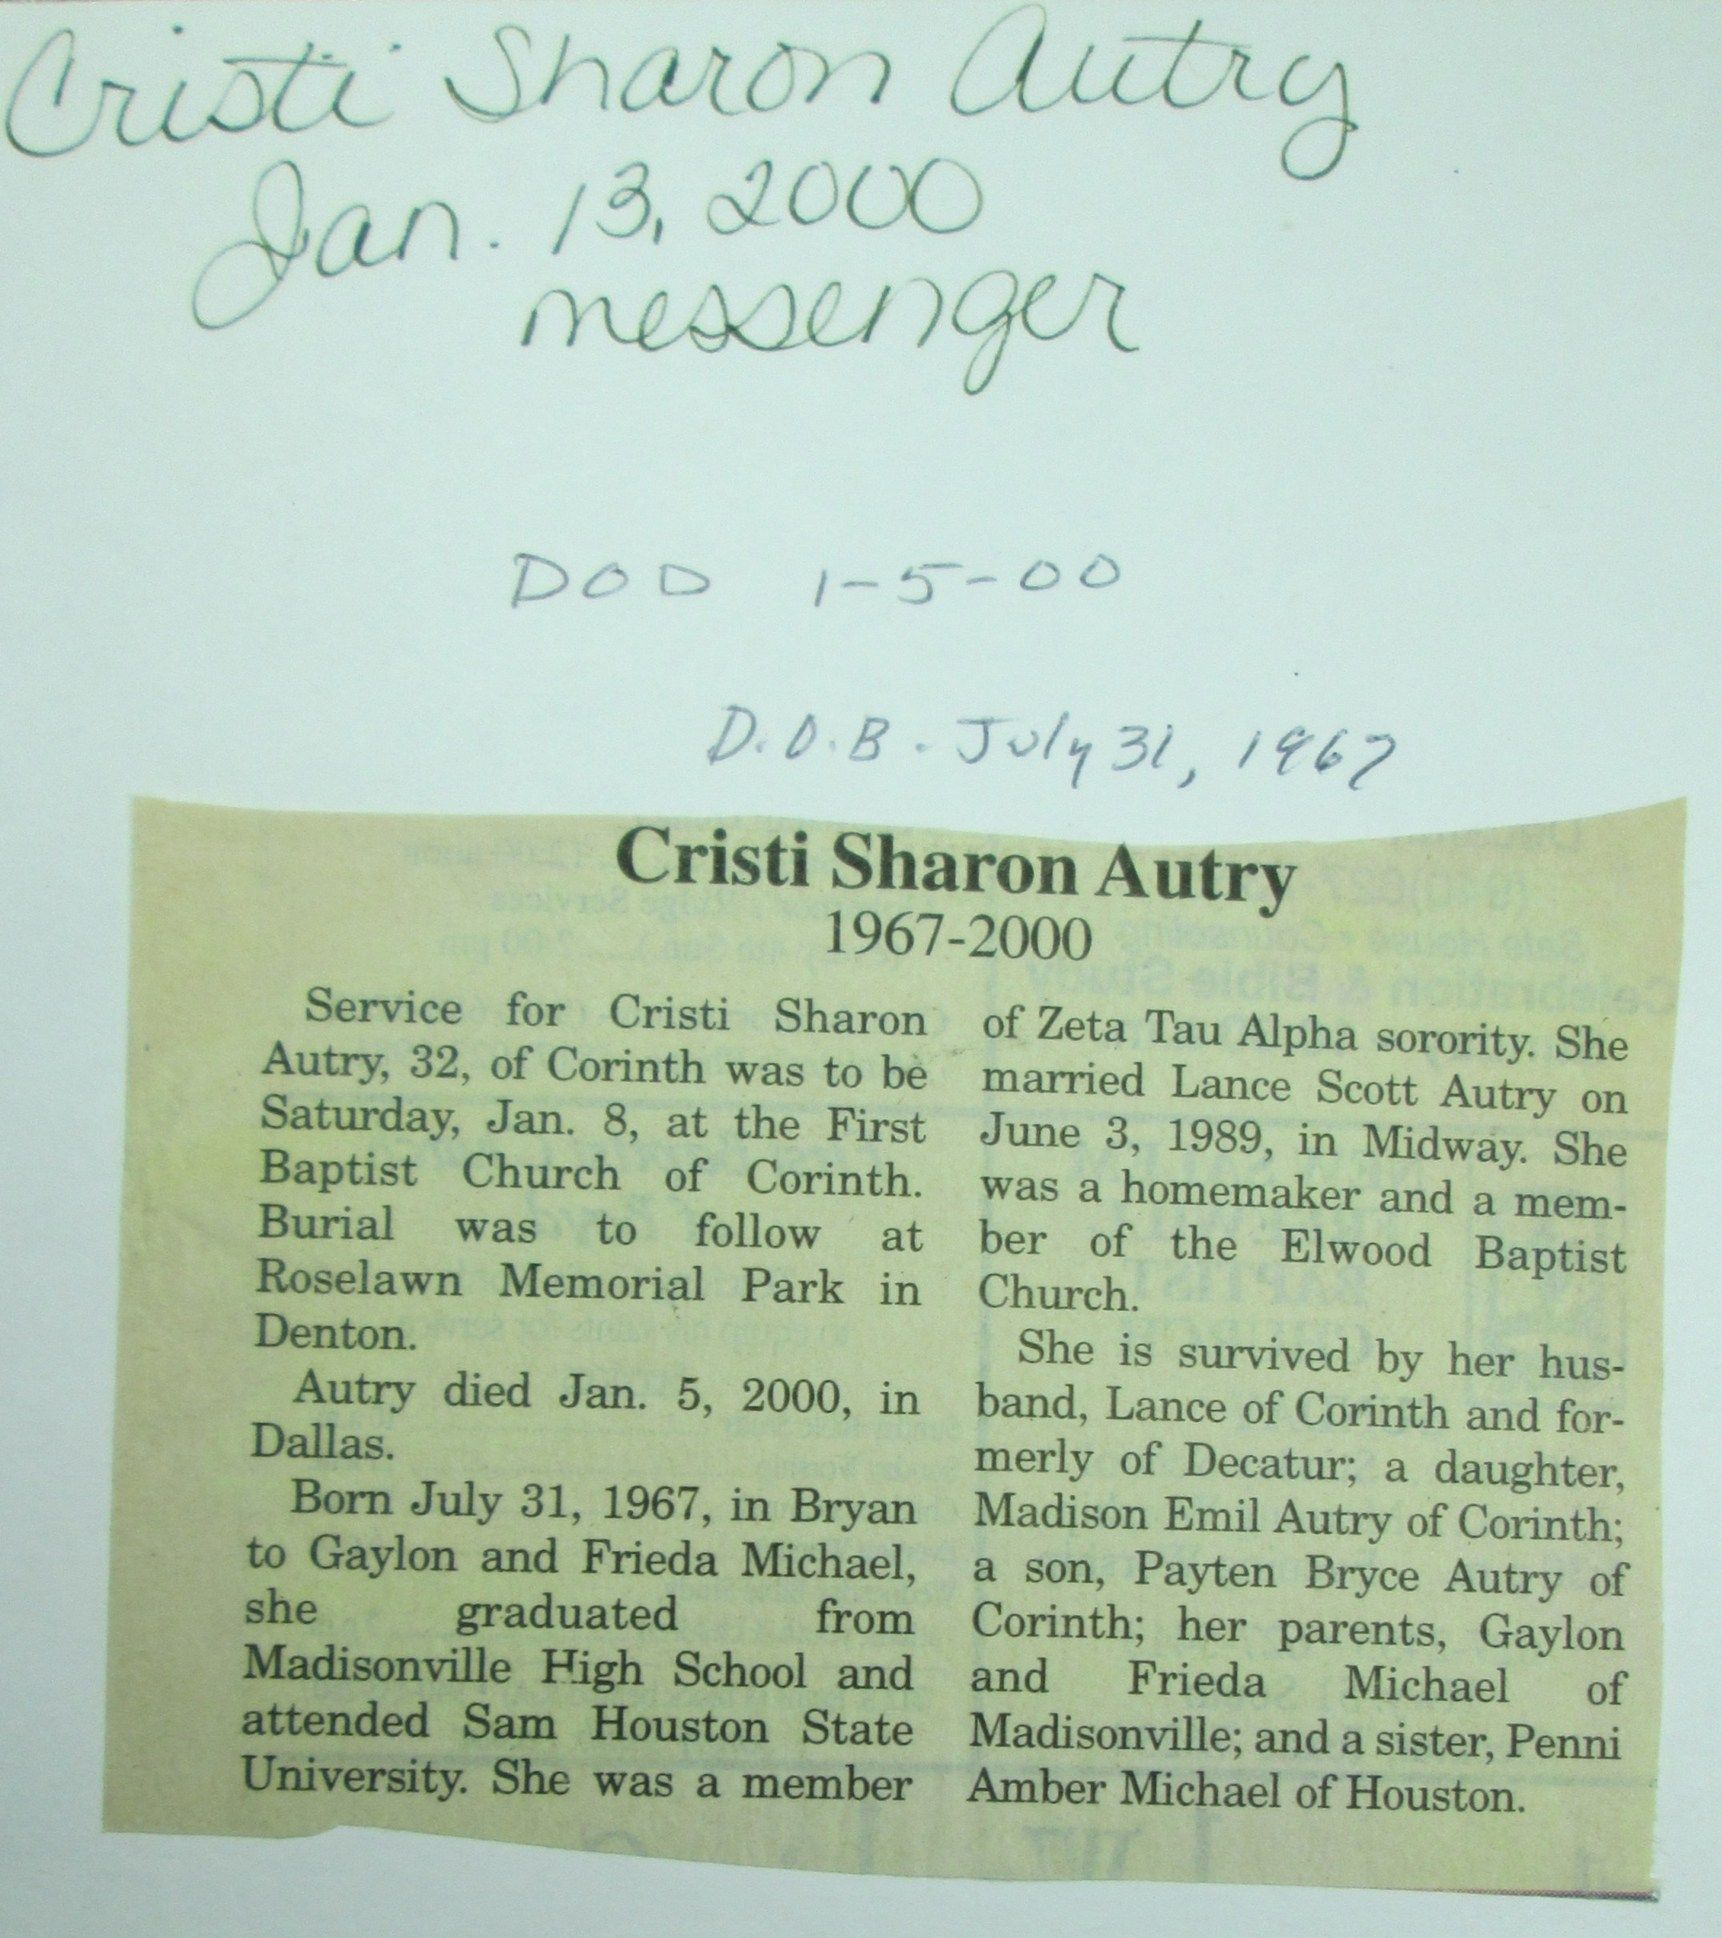 Cristi Sharon Autry
Jan. 13, 2000
messenger
DOD 1-5-00
D.O.B. July 31, 1967
Cristi Sharon Autry
1967-2000
Service for Cristi Sharon
Autry, 32, of Corinth was to be
Saturday, Jan. 8, at the First
Baptist Church of Corinth.
Burial was to follow at
Roselawn Memorial Park in
Denton.
Autry died Jan. 5, 2000, in
Dallas.
Born July 31, 1967, in Bryan
to Gaylon and Frieda Michael,
she graduated from
Madisonville High School and
attended Sam Houston State
University. She was a member
of Zeta Tau Alpha sorority. She
married Lance Scott Autry on
June 3, 1989, in Midway. She
was a homemaker and a mem-
ber of the Elwood Baptist
Church.
She is survived by her hus-
band, Lance of Corinth and for-
merly of Decatur; a daughter,
Madison Emil Autry of Corinth;
a son, Payten Bryce Autry of
Corinth; her parents, Gaylon
and Frieda Michael of
Madisonville; and a sister, Penni
Amber Michael of Houston.